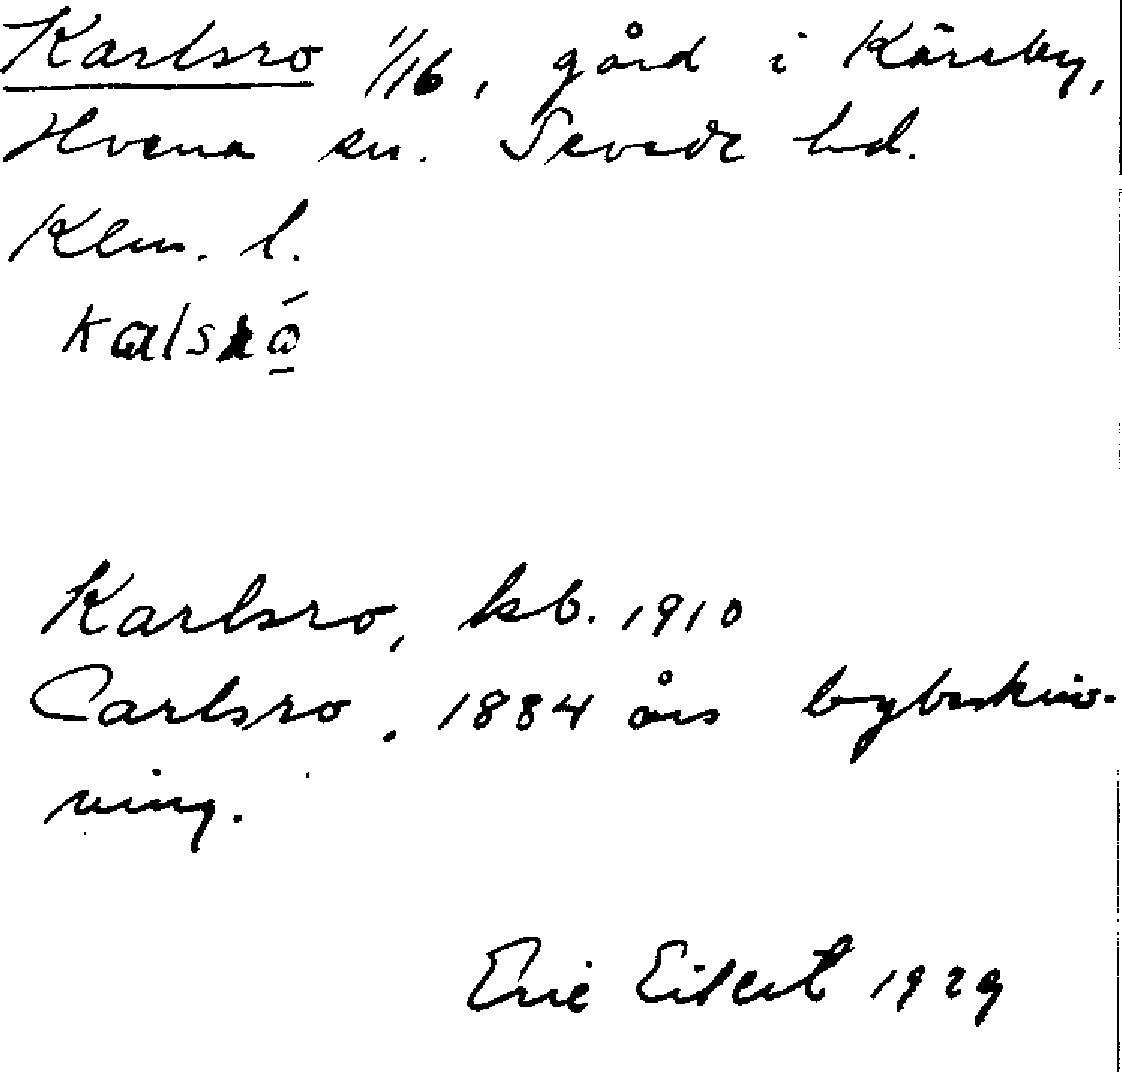 Karlsro 1/16, gård i Kärsby,
Hvena sn. Sevede hd.
Klm. l.
Karlsro, kb. 1910
Carlsro, 1884 års bybeskriv-
ning.
Eric Eilert 1929